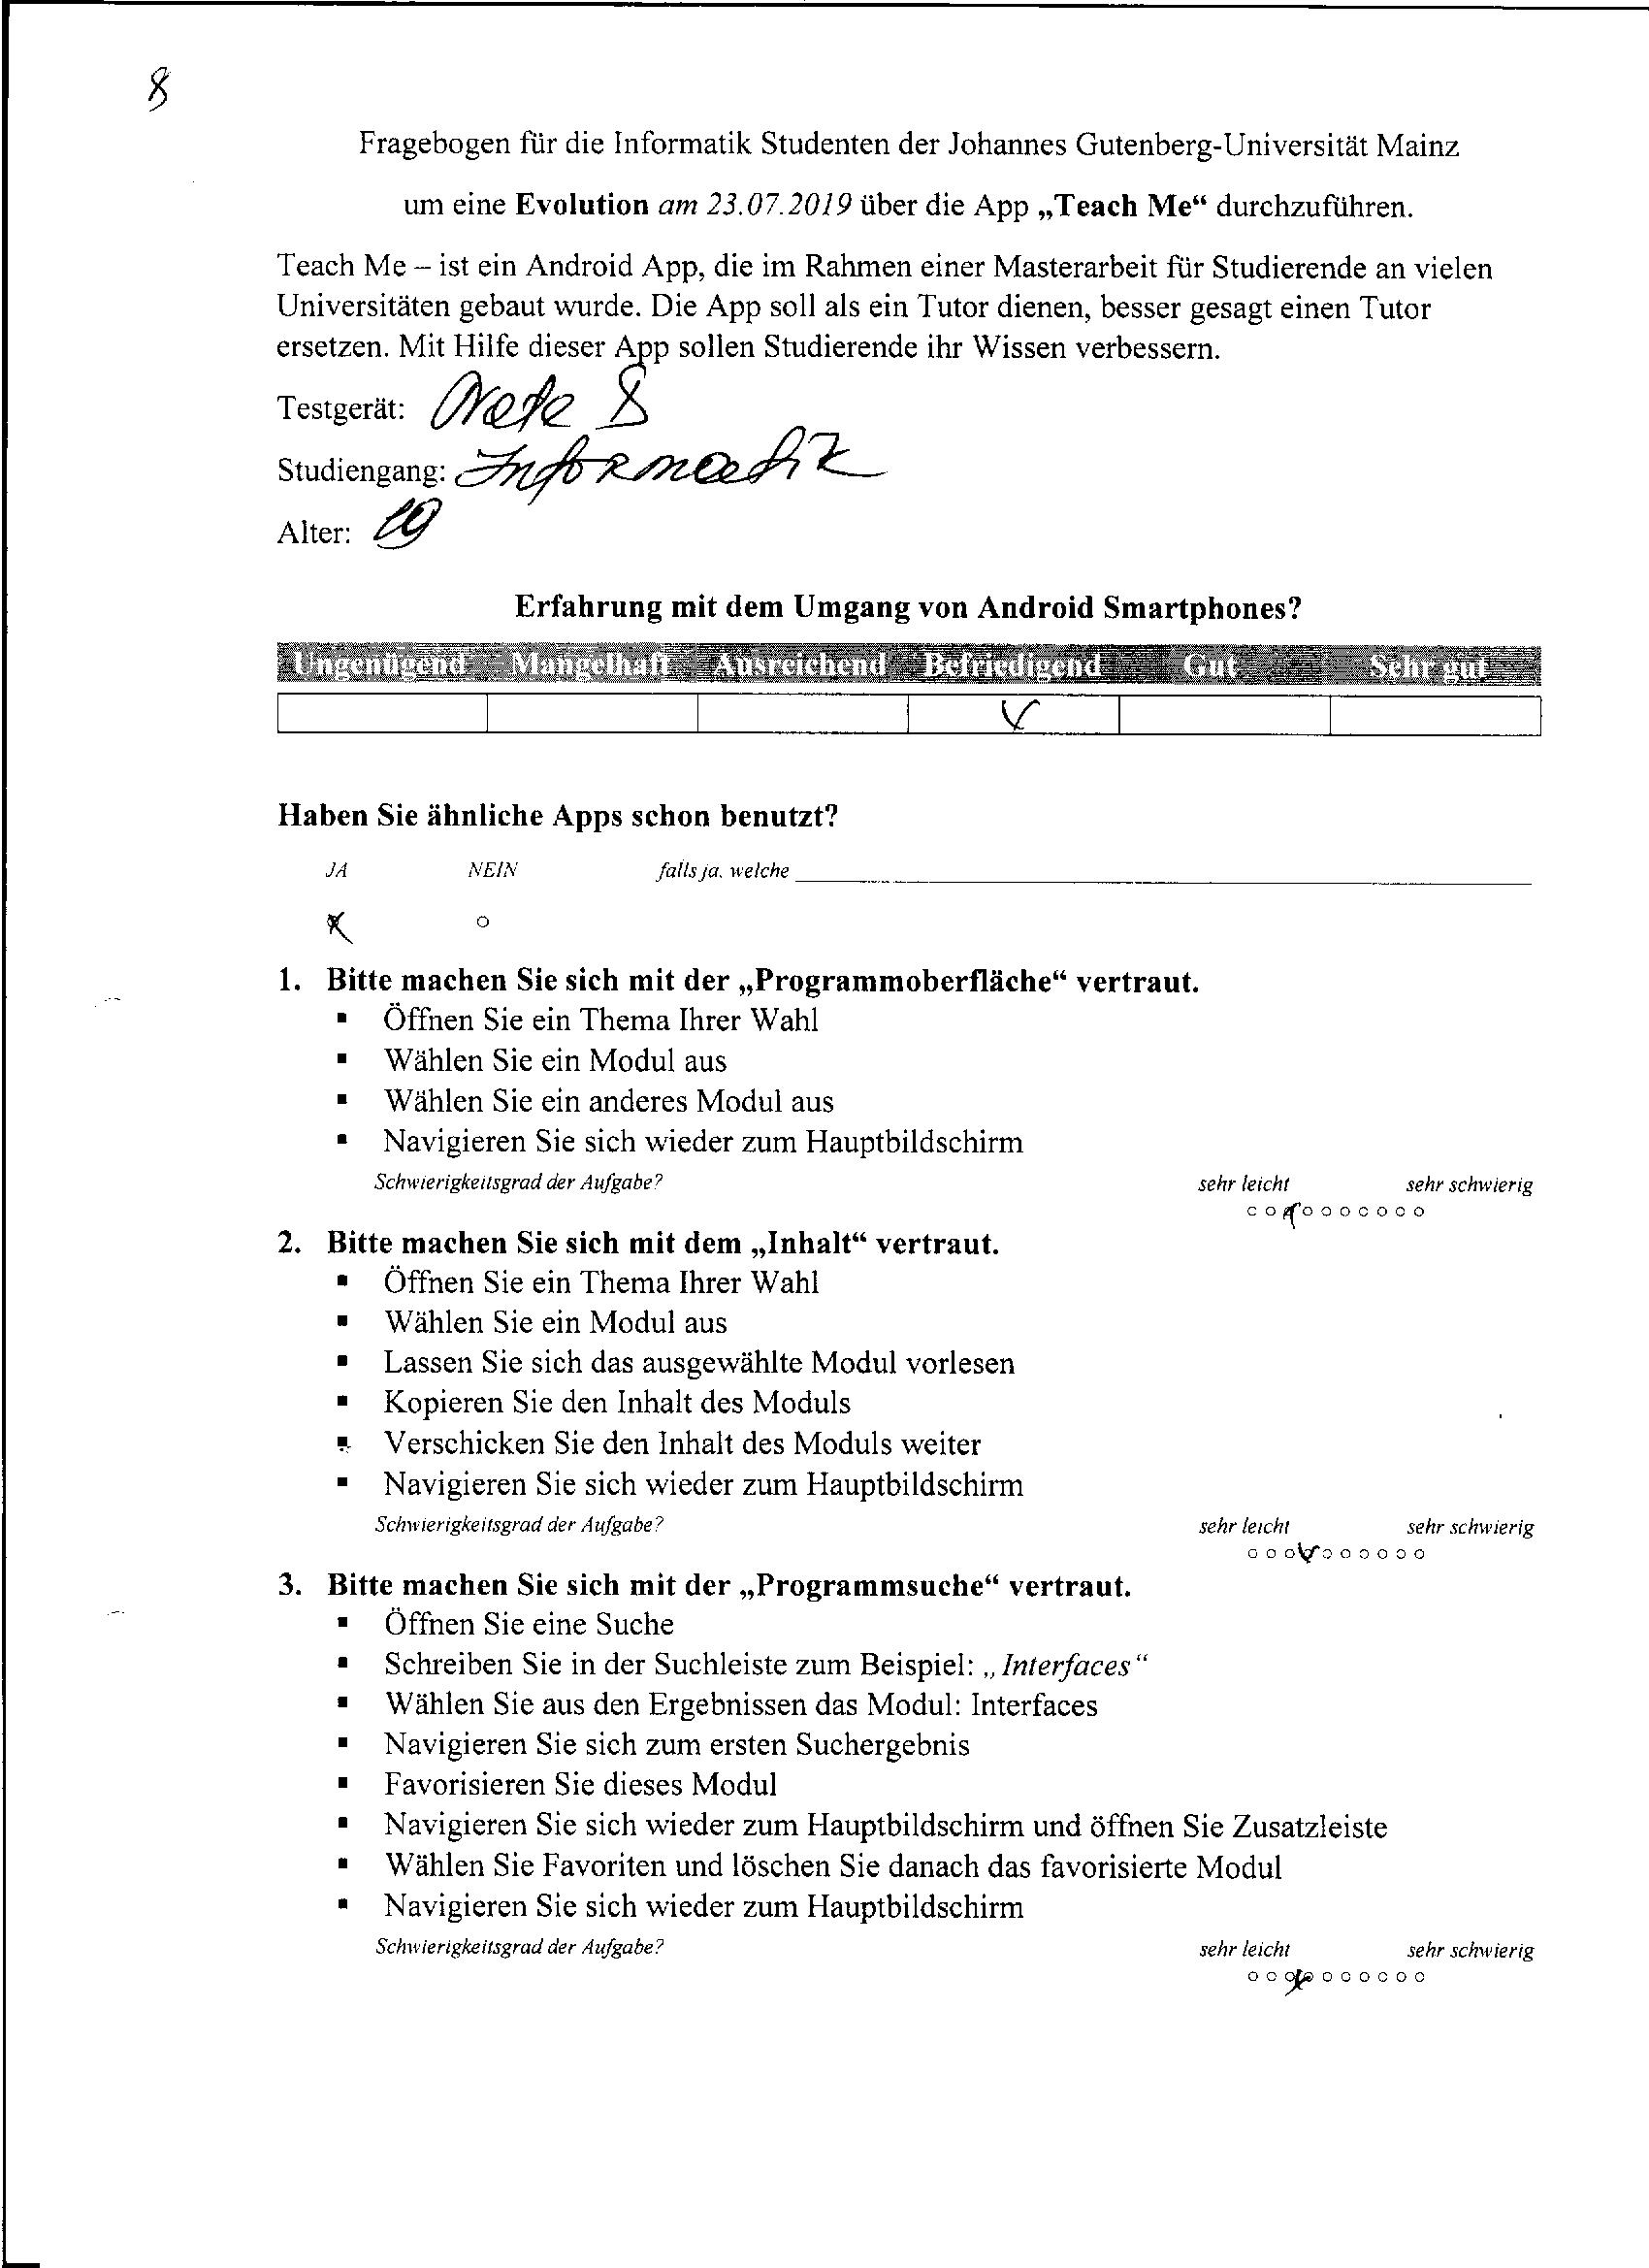 8
Fragebogen für die Informatik Studenten der Johannes Gutenberg-Universität Mainz
um eine Evolution am 23.07.2019 über die App „Teach Me“ durchzuführen.
Teach Me – ist ein Android App, die im Rahmen einer Masterarbeit für Studierende an vielen
Universitäten gebaut wurde. Die App soll als ein Tutor dienen, besser gesagt einen Tutor
ersetzen. Mit Hilfe dieser App sollen Studierende ihr Wissen verbessern.
Testgerät: Note 8
Studiengang: Informatik
Alter:
Erfahrung mit dem Umgang von Android Smartphones?
Ungenügend Mangelhaft Ausreichend Befriedigend Gut Sehr gut
Haben Sie ähnliche Apps schon benutzt?
JA NEIN falls ja, welche
1. Bitte machen Sie sich mit der „Programmoberfläche“ vertraut.
▪ Öffnen Sie ein Thema Ihrer Wahl
▪ Wählen Sie ein Modul aus
▪ Wählen Sie ein anderes Modul aus
▪ Navigieren Sie sich wieder zum Hauptbildschirm
Schwierigkeitsgrad der Aufgabe? sehr leicht sehr schwierig
2. Bitte machen Sie sich mit dem „Inhalt“ vertraut.
▪ Öffnen Sie ein Thema Ihrer Wahl
▪ Wählen Sie ein Modul aus
▪ Lassen Sie sich das ausgewählte Modul vorlesen
▪ Kopieren Sie den Inhalt des Moduls
▪ Verschicken Sie den Inhalt des Moduls weiter
▪ Navigieren Sie sich wieder zum Hauptbildschirm
Schwierigkeitsgrad der Aufgabe? sehr leicht sehr schwierig
3. Bitte machen Sie sich mit der „Programmsuche“ vertraut.
▪ Öffnen Sie eine Suche
▪ Schreiben Sie in der Suchleiste zum Beispiel: „Interfaces“
▪ Wählen Sie aus den Ergebnissen das Modul: Interfaces
▪ Navigieren Sie sich zum ersten Suchergebnis
▪ Favorisieren Sie dieses Modul
▪ Navigieren Sie sich wieder zum Hauptbildschirm und öffnen Sie Zusatzleiste
▪ Wählen Sie Favoriten und löschen Sie danach das favorisierte Modul
▪ Navigieren Sie sich wieder zum Hauptbildschirm
Schwierigkeitsgrad der Aufgabe? sehr leicht sehr schwierig